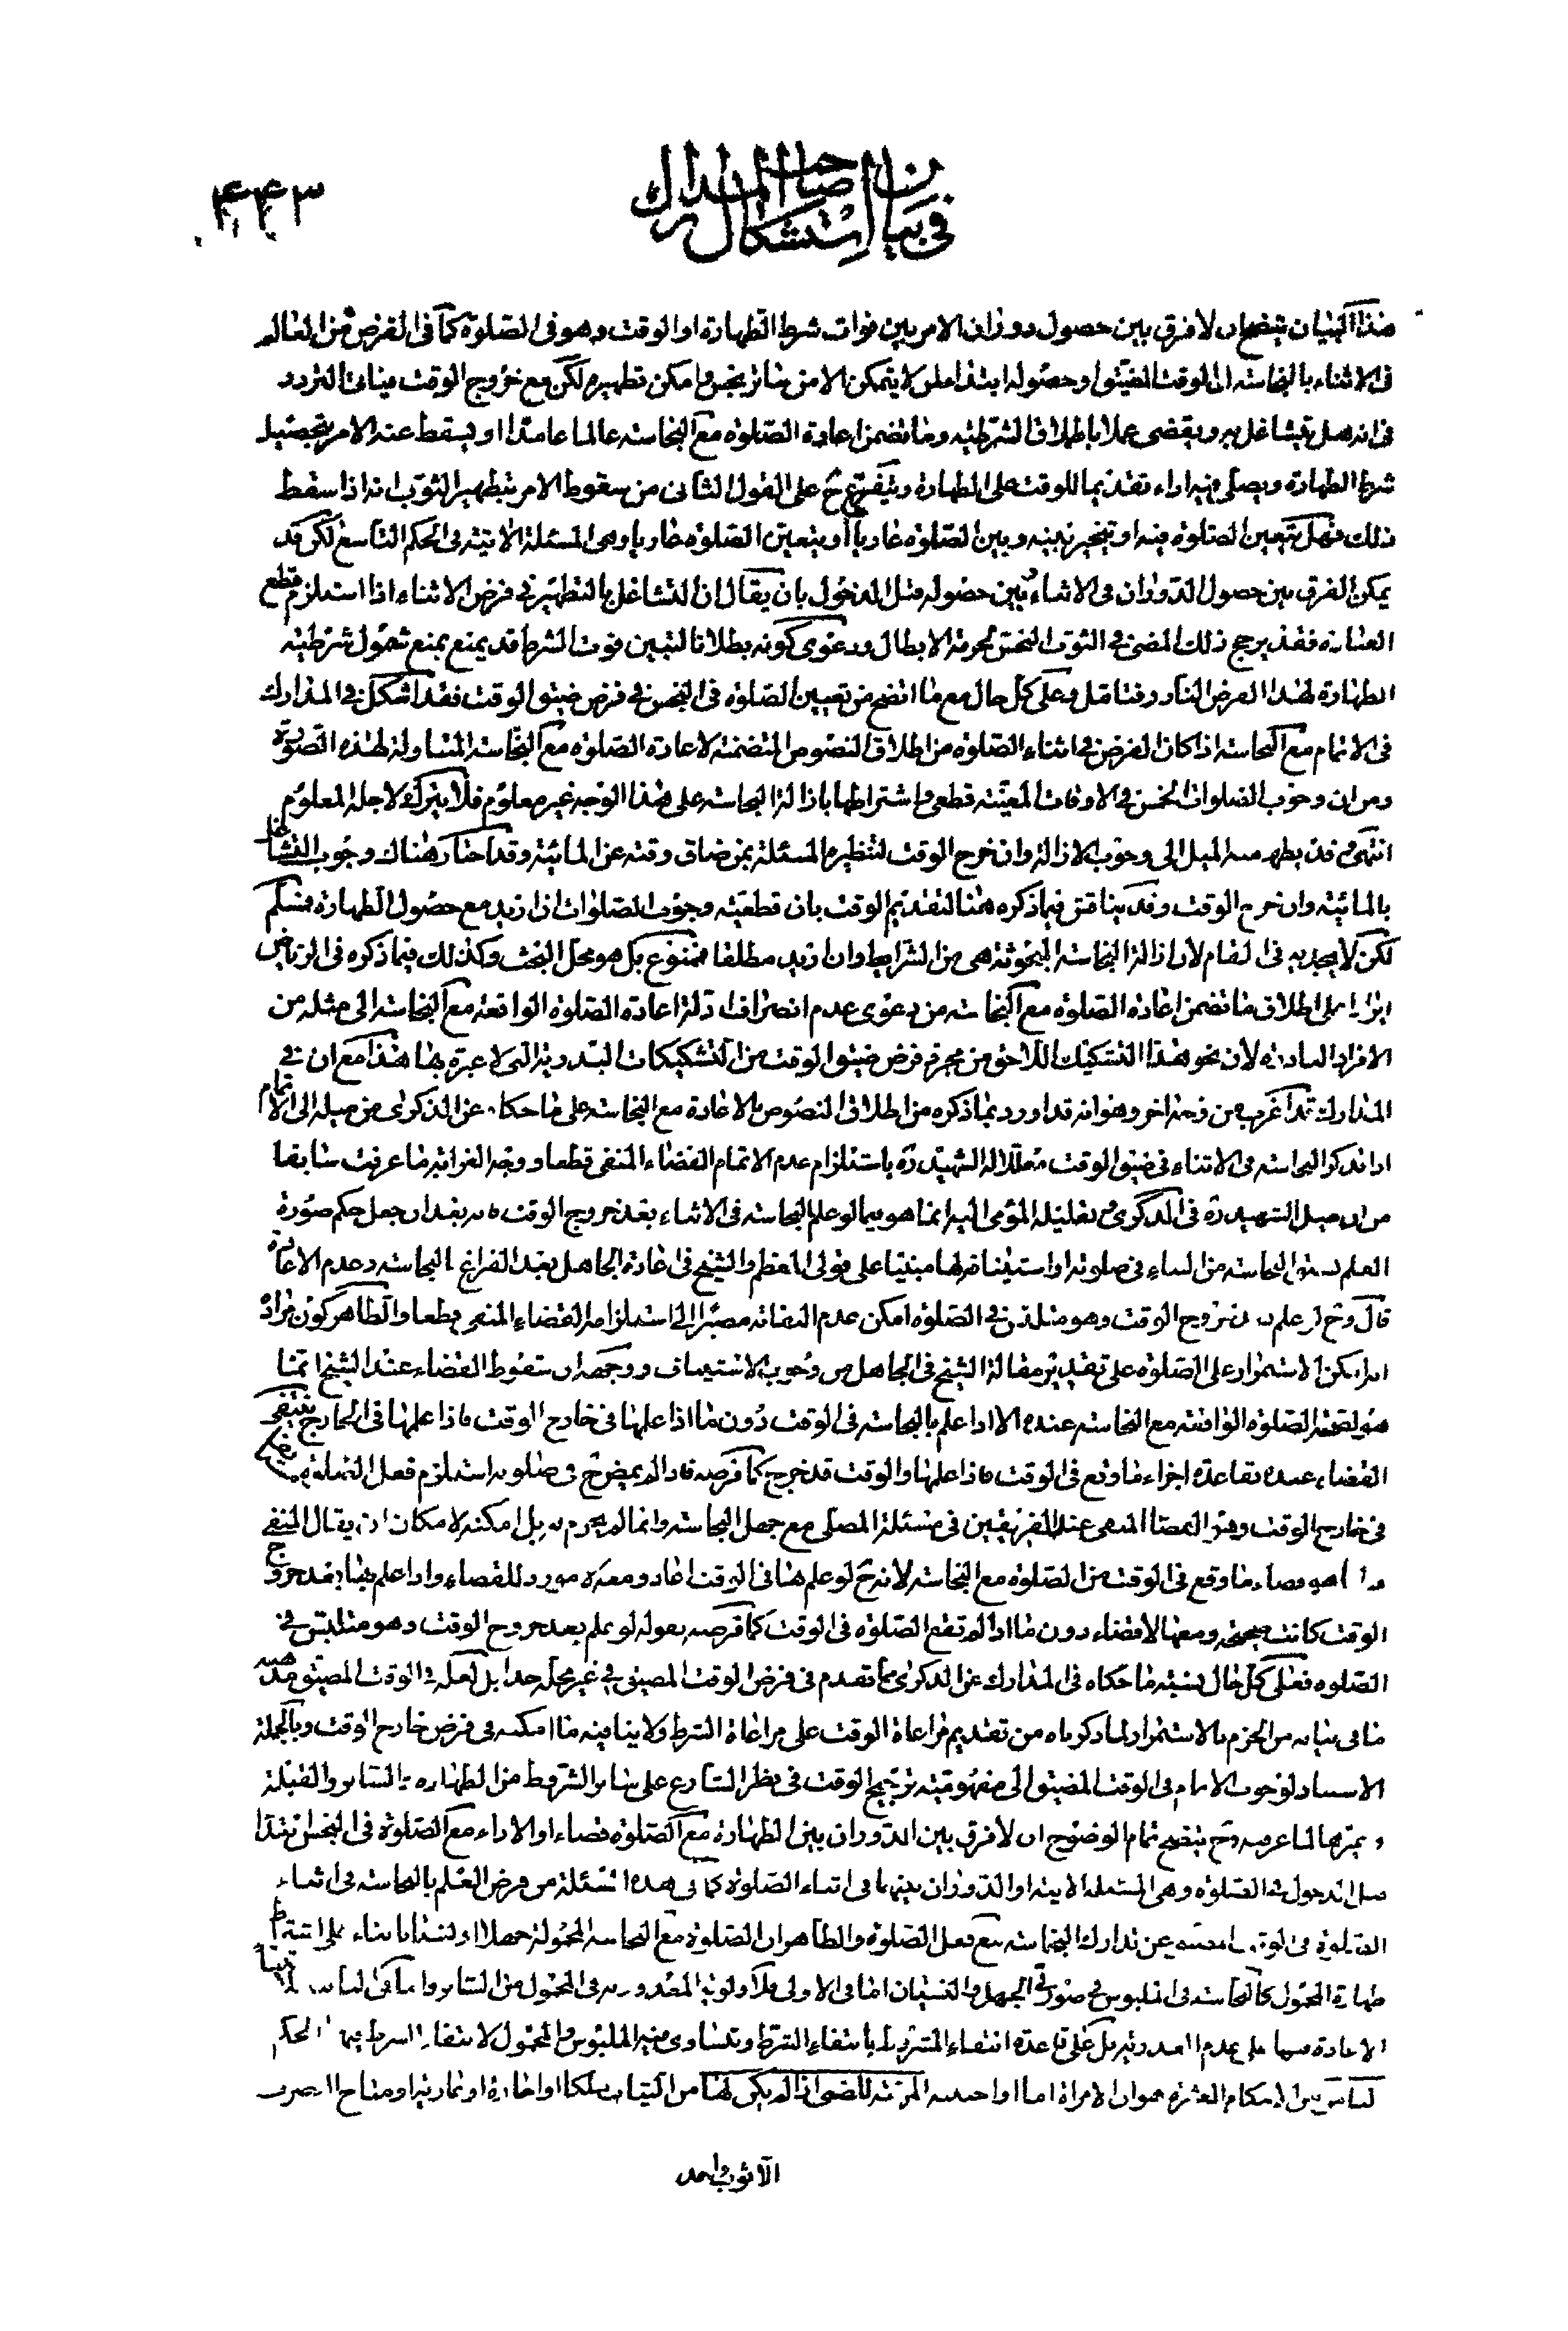 في بيان استشكال صاحب المدارك
٤٤٣
هذا البيان يتضح ان لا فرق بين حصول دوران الامر بين فوات شرط الطهارة او الوقت وهو في الصلوة كما في الفرض من العالم
في الاثناء بالنجاسة في الوقت المضيق او حصوله ابتداء لمن لا يتمكن الا من ساتر نجس وامكن تطهيره لكن مع خروج الوقت فياتى التردد
في انه هل يتشاغل به ويقضى عملا باطلاق الشرطية وما تضمن اعادة الصلوة مع النجاسة عالما عامدا او يسقط عنه الامر بتحصيل
شرط الطهارة ويصلى فيه اداء تقديما للوقت على الطهارة ويتفرع ح على القول الثانى من سقوط الامر بتطهير الثوب انه اذا سقط
ذلك فهل يتعين الصلوة فيه او يتخير بينه وبين الصلوة عاريا او يتعين الصلوة عاريا وهى المسئلة الاتية في الحكم التاسع لكن قد
يمكن الفرق بين حصول الدوران في الاثناء وبين حصوله قبل الدخول بان يقال ان التشاغل بالتطهير في فرض الاثناء اذا استلزم قطع
العبادة فقد يرجح ذلك المضى في الثوب النجس لحرمة الابطال ودعوى كونه بطلانا لتبين فوت الشرط قد يمنع بمنع شمول شرطية
الطهارة لهذا الفرض النادر فتامل وعلى كل حال مع ما اتضح من تعيين الصلوة في النجس في فرض ضيق الوقت فقد اشكل في المدارك
في الاتمام مع النجاسة اذا كان الفرض في اثناء الصلوة من اطلاق النصوص المتضمنة لاعادة الصلوة مع النجاسة المتناولة لهذه الصورة
ومن ان وجوب الصلوات الخمس في الاوقات المعينة قطعى واشتراطها بازالة النجاسة على هذا الوجه غير معلوم فلا يترك لاجله المعلوم
انتهى وقد يظهر منه الميل الى وجوب الازالة وان خرج الوقت لتنظيره المسئلة بمن ضاق وقته عن المائية وقد اختار هناك وجوب التشاغل
بالمائية وان خرج الوقت وقد يناقش فيما ذكره هنا لتقديم الوقت بان قطعية وجوب الصلوات اذا اريد مع حصول الطهارة فمسلم
لكن لا يجديه في المقام لان ازالة النجاسة المبحوثة هى من الشرايط وان اريد مطلقا فممنوع بل هو محل البحث وكذلك فيما ذكره في الرياض
ايرادا على اطلاق ما تضمن اعادة الصلوة مع النجاسة من دعوى عدم انصراف ادلة اعادة الصلوة الواقعة مع النجاسة الى مثله من
الافراد النادرة لان نحو هذا التشكيك اللاحق من مجرد فرض ضيق الوقت من التشكيكات البدوية التى لا عبرة بها هذا مع ان في
المدارك قد اغرب من وجه اخر وهو انه قد اورد بما ذكره من اطلاق النصوص بالاعادة مع النجاسة على ما حكاه عن الذكرى من ميله الى الاتمام
اذا تذكر النجاسة في الاثناء في ضيق الوقت معللا له الشهيد ره باستلزام عدم الاتمام القضاء المنفى قطعا ووجه الغرابة ما عرفت سابقا
من ان ميل الشهيد ره في الذكرى وتعليله المومى اليه انما هو فيما لو علم النجاسة في الاثناء بعد خروج الوقت فانه بعد ان جعل حكم صورة
العلم بسبق النجاسة من البناء في صلوته او استينافها مبنيا على قولى المعظم والشيخ في اعادة الجاهل بعد الفراغ بالنجاسة وعدم الاعادة
قال وح لو علم بعد خروج الوقت وهو متلبس في الصلوة امكن عدم التفاته مصيرا الى استلزامه القضاء المنفى قطعا والظاهر كون مراده
امكن الاستمرار على الصلوة على تقدير مقالة الشيخ في الجاهل من وجوب الاستيناف ووجهه ان سقوط القضاء عند الشيخ انما
هو لصحة الصلوة الواقعة مع النجاسة عنده الا اذا علم بالنجاسة في الوقت دون ما اذا علمها في خارج الوقت فاذا علمها في الخارج ينتفى
القضاء عنده بقاعدة اجزاء ما وقع في الوقت فاذا علمها والوقت قد خرج كما فرضه فاذا لم يمض ح في صلوته استلزم فعل الصلوة
في خارج الوقت وهو القضاء المنفى عند الفريقين في مسئلة المصلى مع جهل النجاسة وانما لم يجزم به بل امكنه لامكان ان يقال المنفى
انما هو قضاء ما وقع في الوقت من الصلوة مع النجاسة لانه ح لو علم هنا في الوقت اعاد ومعه لا مورد للقضاء واذا علم هنا بعد خروج
الوقت كانت صحيحة ومعها لا قضاء دون ما اذا لم تقع الصلوة في الوقت كما فرضه بقوله لو علم بعد خروج الوقت وهو متلبس في
الصلوة فعلى كل حال نسبة ما حكاه في المدارك عن الذكرى مما تقدم في فرض الوقت المضيق في غير محله جدا بل لعله في الوقت المضيق
ما في بيانه من الجزم بالاستمرار لما ذكرناه من تقديم مراعاة الوقت على مراعاة الشرط ولا ينافيه ما امكنه في فرض خارج الوقت وبالجملة
الاستناد لوجوب الاتمام في الوقت المضيق الى مفهومية ترجيح الوقت في نظر الشارع على سائر الشروط من الطهارة والساتر والقبلة
وغيرها لما عرفته وح يتضح تمام الوضوح ان لا فرق بين الدوران بين الطهارة مع الصلوة قضاء او الاداء مع الصلوة في النجس ابتداء
قبل الدخول في الصلوة وهى المسئلة الاتية او الدوران بينهما في اثناء الصلوة كما في هذه المسئلة من فرض العلم بالنجاسة في اثناء
الصلوة في الوقت عن تدارك النجاسة مع فعل الصلوة والظاهر ان الصلوة مع النجاسة المحمولة جهلا او نسيانا بناء على اشتراط
طهارة المحمول كالنجاسة في الملبوس في صورتى الجهل والنسيان اما في الاولى فلاولوية المعذورية في المحمول من الساتر واما في الثانية
الاعادة فيهما على عدم المعذورية بل على قاعدة انتفاء المشروط بانتفاء الشرط وتساوى فيه الملبوس والمحمول لانتفاء الشرط فيهما الحكم
السادس من احكام العشرة هو ان الامراة اما او اجنبية المربية للصبى اذا لم يكن لها من الثياب ملكا او اجارة او عارية او مباح التصرف
الا ثوب واحد